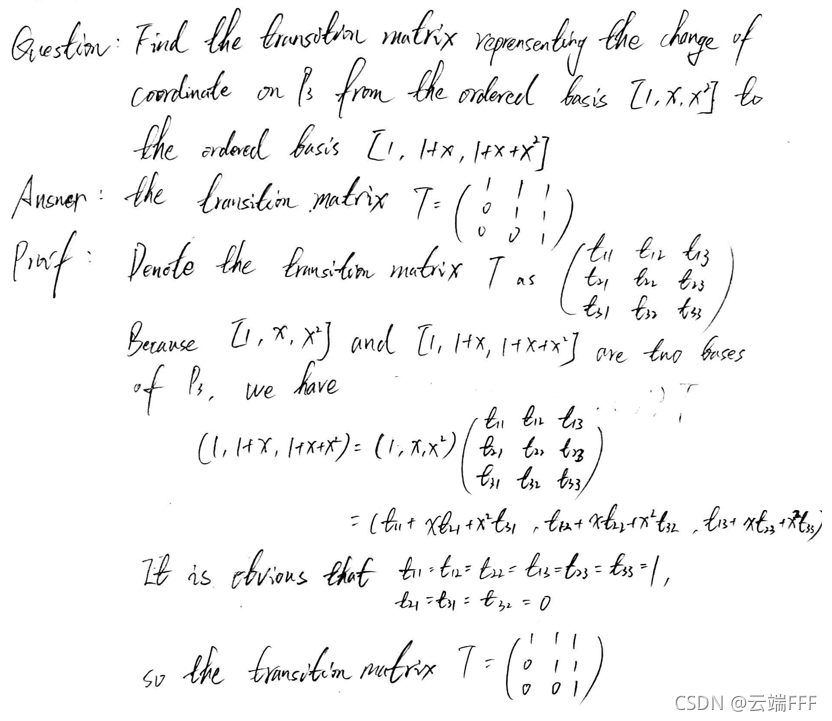 Question: Find the transition matrix reprensenting the change of
coordinate on P₃ from the ordered basis [1, x, x²] to
the ordered basis [1, 1+x, 1+x+x²]
Answer: the transition matrix T = ( 1 1 1
0 1 1
0 0 1 )
Proof: Denote the transition matrix T as ( t₁₁ t₁₂ t₁₃
t₂₁ t₂₂ t₂₃
t₃₁ t₃₂ t₃₃ )
Because [1, x, x²] and [1, 1+x, 1+x+x²] are two bases
of P₃, we have
(1, 1+x, 1+x+x²) = (1, x, x²) ( t₁₁ t₁₂ t₁₃
t₂₁ t₂₂ t₂₃
t₃₁ t₃₂ t₃₃ )
= (t₁₁ + xt₂₁ + x²t₃₁, t₁₂ + xt₂₂ + x²t₃₂, t₁₃ + xt₂₃ + x²t₃₃)
It is obvious that t₁₁ = t₁₂ = t₂₂ = t₁₃ = t₂₃ = t₃₃ = 1,
t₂₁ = t₃₁ = t₃₂ = 0
so the transition matrix T = ( 1 1 1
0 1 1
0 0 1 )
CSDN @云端FFF